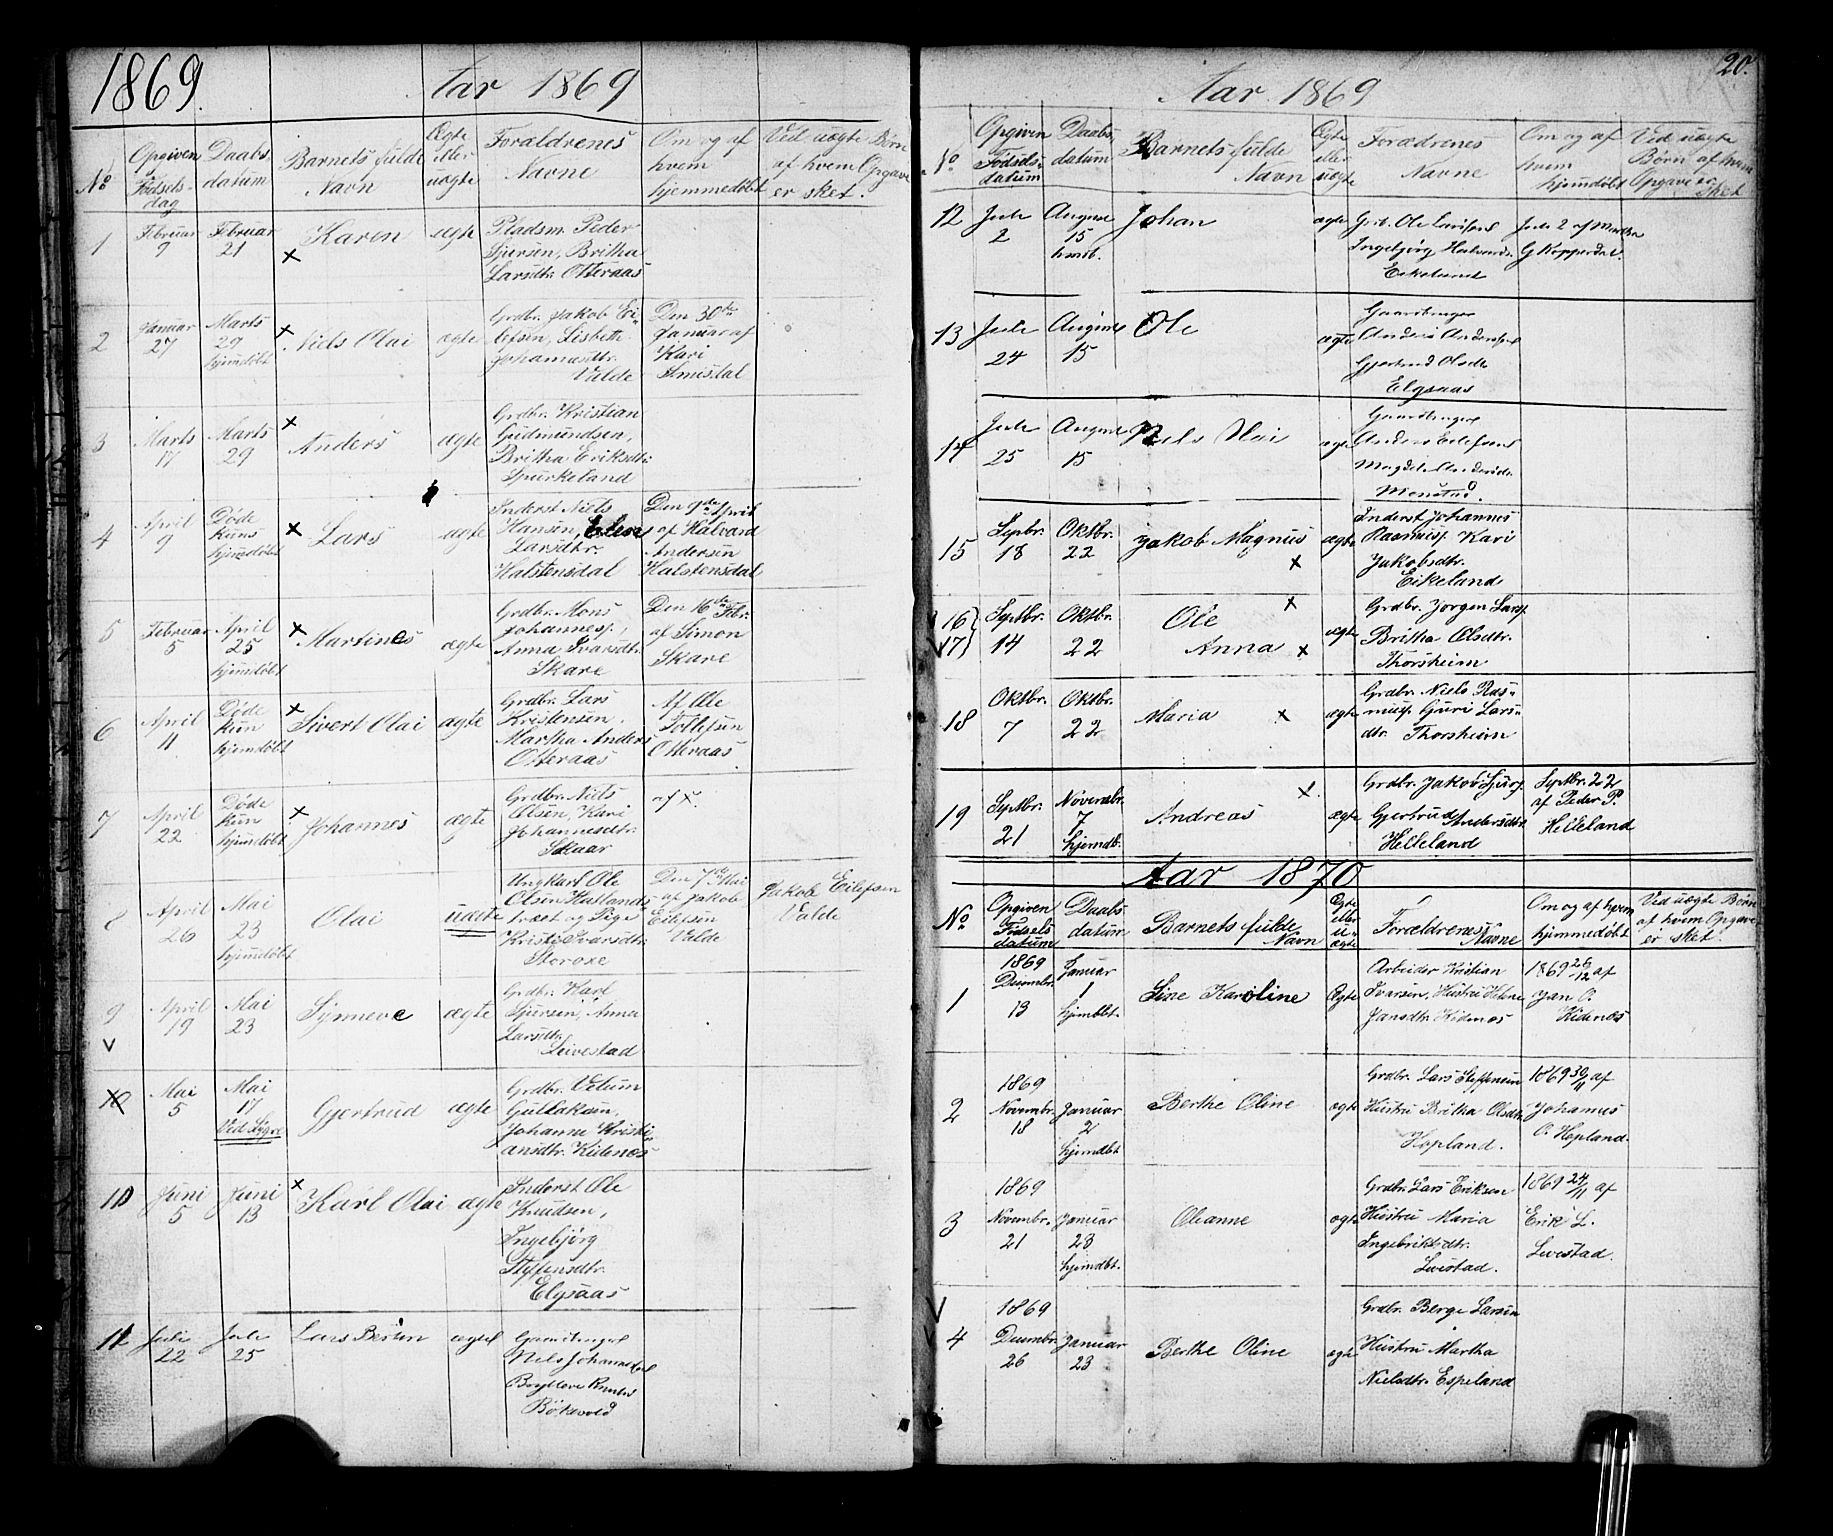 1869.
Aar 1869
No
Opgiven
Fødsels-
dag
Daabs,
datum
Barnets fulde
Navn
Ægte
eller
uægte
Forældrenes
Navne
Om og af
hvem
hjemmedøbt
Ved uægte Børn
af hvem Opgave
er sket.
1
Februar
9
Februar
21
Karen
ægte
Pladsm. Peder
Sjursen, Britha
Larsdtr. Otteraas
2
Januar
27
Marts
29
hjemdøbt
Niels Olai
ægte
Grdbr. Jakob Ei-
lefsen, Lisbeth
Johannesdtr.
Valde
Den 30te
Januar af
Kari
3
Marts
17
Marts
29
Anders
ægte
Grdbr. Kristian
Gudmundsen,
Britha Eriksdtr.
Spurkeland
4
April
9
Døde
kuns
hjemdøbt
Lars
ægte
Inderst Niels
Hansen, Elen
Larsdtr.
Halstensdal
Den 9de April
af Halvard
Andersen
Halstensdal
5
Februar
5
April
25
hjemdøbt
Martines
ægte
Grdbr. Mons
Johannesp.,
Anna Ivarsdtr.
Skare
Den 16de Febr.
af Simon
Skare
6
April
11
Døde
kun
hjemdøbt
Sivert Olai
ægte
Grdbr. Lars
Kristensen.
Martha Anders
Otteraas
Af Ole
Tollefsen
Otteraas
7
April
22
Døde
kun
hjemdøbt
Johannes
ægte
Grdbr. Niels
Olsen, Kari
Johannesdtr.
Skaar
af x.
8
April
26
Mai
23
hjemdøbt
Olai
uægte
Ungkarl Ole
Olsen Hallands-
træet og Pige
Kristi Ivarsdtr.
Storoxe
Den 7de Mai
af Jakob
Eilefsen
Valde
Jakob Eilefsen
Valde
9
April
19
Mai
23
Synneve
ægte
Grdbr. Karl
Sjursen, Anna
Larsdtr.
Leivestad
10
Mai
5
Mai
17
Ved Sygve
Gjertrud
ægte
Grdbr. Velum
Gullaksen,
Johanne Kristi-
ansdtr. Kidenæs
10
Juni
5
Juni
13
Karl Olai
ægte
Inderst Ole
Knudsen,
Ingebjørg
Steffensdtr.
Elgsaas
11
Juli
22
Juli
25
Lars Berten
ægte
Gaardbruger
Nils Johannesen
Bøkevold
20.
Aar 1869
No
Opgiven
Fødsels-
datum
Daabs,
datum
Barnets fulde
Navn
Ægte
eller
uægte
Forældrenes
Navne
Om og af
hvem
hjemdøbt
Ved uægte
Børn af hvem
Opgave er
sket
12
Juli
2
August
15
Johan
ægte
Grb. Ole Larsens
Ingebjørg
Eikeland
Juli 2 af
G Kopperdal
13
Juli
24
August
15
Ole
ægte
Gaardbruger
Anders Andersen
Gjertrud Olsdtr
Elgsaas
14
Juli
25
August
15
Nils Olai
ægte
Gaardbruger
Anders Eilefsens
Monstad.
15
Septbr.
18
Oktbr.
22
Jakob Magnus
ægte
Inderst Johannes
Rasmusp. Kari
Jakobsdtr.
Eikeland
16
17
Septbr.
14
Oktbr.
22
Ole
Anna
ægte
Grdbr. Jørgen Larsp.
Britha Olsdtr.
Thorsheim
18
Oktbr.
7
Oktbr.
22
Maria
ægte
Grdbr. Niels Ras-
musp. Guri Lars-
dtr. Thorsheim
19
Septbr.
21
Novembr.
7
hjemdb.
Andreas
ægte
Grdbr. Jakob Sjursp.
Gjertrud Andersdtr.
Helleland
Septbr. 22
af Peder P.
Helleland
Aar 1870
No
Opgiven
Fødsels
datum
Daabs
datum
Barnets fulde
Navn
Ægte
eller
u-
ægte
Forældrenes
Navne
Om og af hvem
hjemmedøbt
Ved uægte Børn
af hvem Opgave
er sket.
1
1869
Decembr.
13
Januar
1
hjemdbt.
Sine Karoline
Ægte
Arbeider Kristian
Ivarsen, Hustru Helene
Jansdtr. Kidenæs
1869 26/12 af
Jan O.
Kidenæs
2
1869
Novembr.
18
Januar
2
hjemdbt
Berthe Oline
ægte
Grdbr. Lars Steffensen
Hustru Britha Olsdtr.
Hopland.
1869 30/11 af
Johannes
O. Hopland.
3
1869
Novembr.
21
Januar
23
hjemdbt.
Oleanne
ægte
Grdbr. Lars Eriksen
Hustru Maria
Ingebriktsdtr.
Livestad.
1869 24/11 af
Erik L.
Livestad.
4
1869
Decembr.
26
Januar
23
Berthe Oline
ægte
Grdbr. Berge Larsen
Hustru Martha
Nielsdtr. Espeland